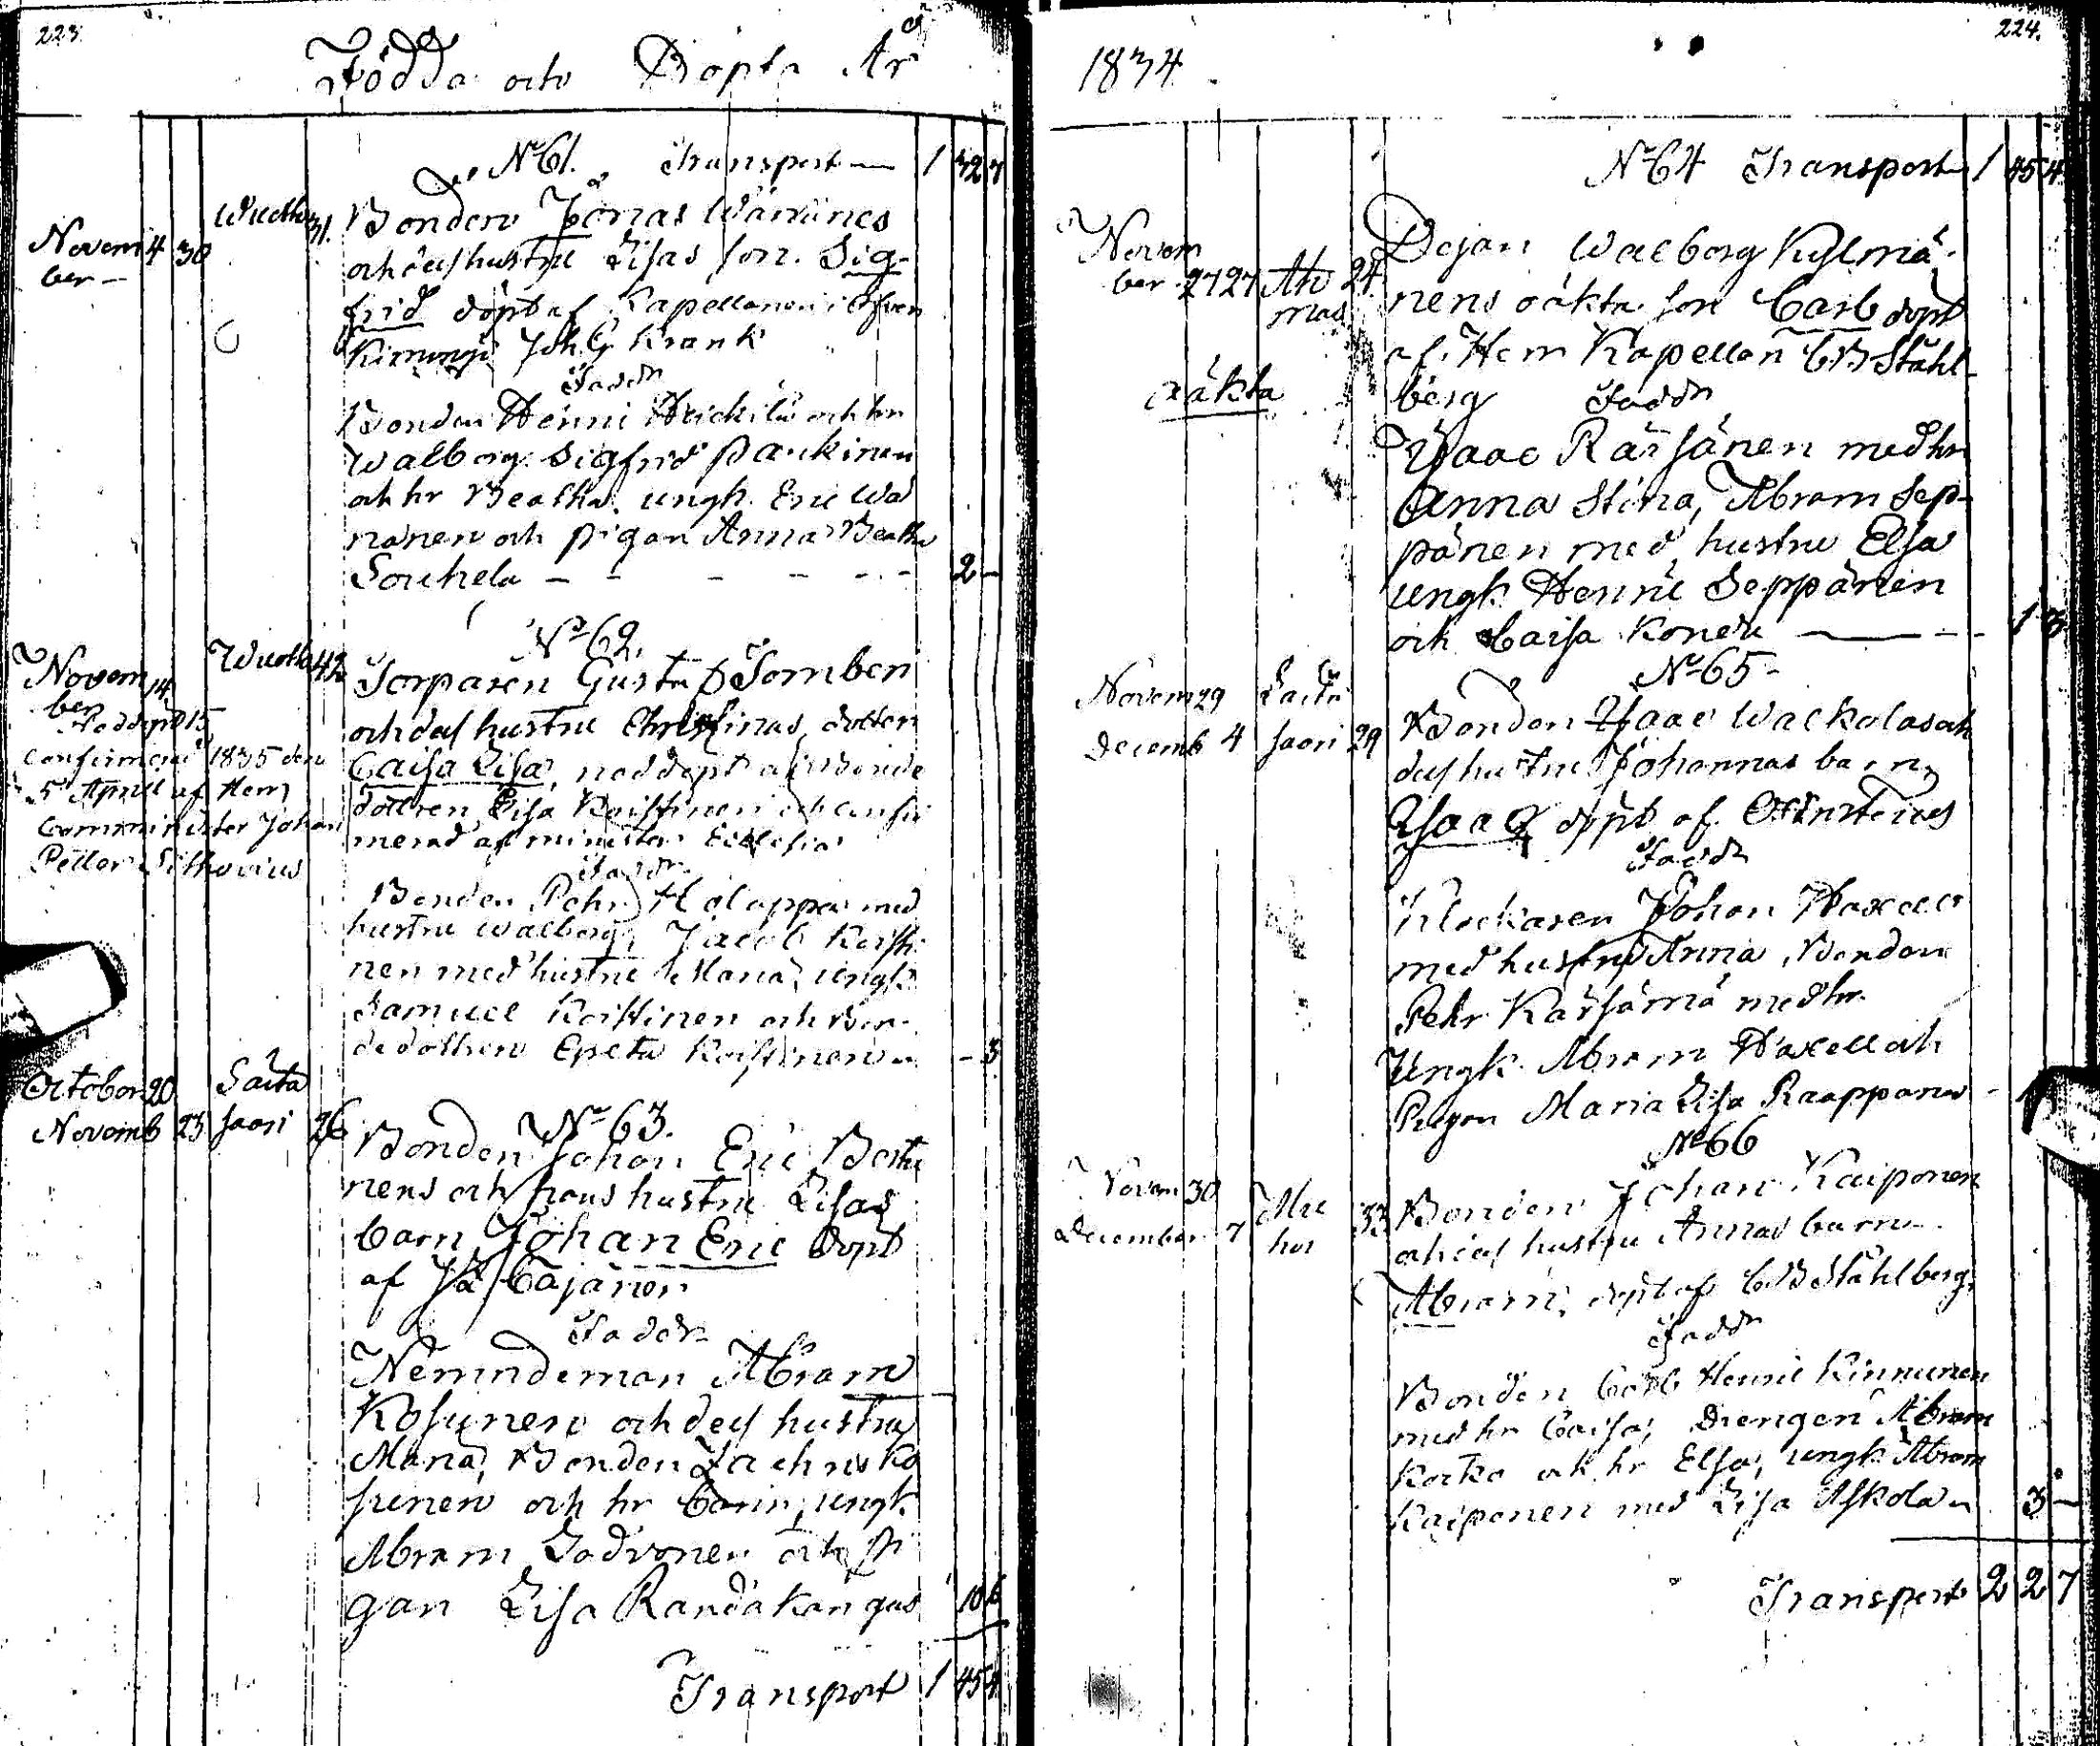 223.
Födda och Döpta År
No 61. Transport — 1 32 7
Novem 4 30
ber —
31.
Bonden Jonas
och des hustru Lisas son. Sig-
frid döpt af Kapellanen i
Joh. G. Krank
Faddr
Bonden Henric och hr
Walborg. Sigfrid Paukinen
och hr Beatha. ungk. Eric Wä
nänen och pigan Anna Beatha
— — — — — 2 —
No 62.
Novem 14
ber
Nöddöpt 15
Confirmerad 1835 den
5 April af Herr
Comminister Johan
Petter
42
Torparen Gustaf Tomberi
och des hustru Christinas dotter
Caisa Lisa, nöddöpt af Bonde
dottren Lisa Koistinen och confir
merad af minister Ecclesiae
Faddr
Bonden Pehr Holappa med
hustru Walborg, Jacob Koisti
nen med hustru Maria, ungk
Samuel Koistinen och Bon-
dedottren Greta Koistinen — 3
October 20 Saita
Novemb 23 saari 26
No 63.
Bonden Johan Eric
nens och hans hustru Lisas
barn Johan Eric döpt
af Cajanen
Faddr
Nämndeman Abram
Kosunen och des hustru
Maria, Bonden Zachris Ko
sunen och hr Carin, ungk.
Abram och pi
gan Lisa Randakangas 10 6
Transport 1 45 4
1834.
224.
No 64 Transport 1 45 4
Novem
ber 27 27 Ah 24
mas
oäkta
Dejan Walborg Kylmä-
nens oäkta son Carl döpt
af Herr Kapellan C B Ståhl-
berg Faddr
Isaac Räisänen med hr
Anna Stina, Abram Sep-
pänen med hustru Elsa
ungk. Henric Seppänen
och Caisa Kondu — 1 3
No 65
Novem 29 Saita
Decemb 4 saari 29
Bonden Isaac Walkolas och
des hustru Johannas barn
Isaac döpt af
Faddr
Klockaren Johan Haxell
med hustru Anna, Bonden
Pehr Kärsämä med hr
Ungk. Abram Haxell och
Pigan Maria Lisa Raappana —
No 66
Novem 30
December 7 33
Bonden Johan Kaiponen
och des hustru Annas barn
Abram, döpt af C B Ståhlberg
Faddr
Bonden Carl Henric Kinnunen
med hr Caisa, Drengen Abram
och hr Elsa, ungk Abram
Kaiponen med Lisa Askola 3 —
Transport 2 2 7